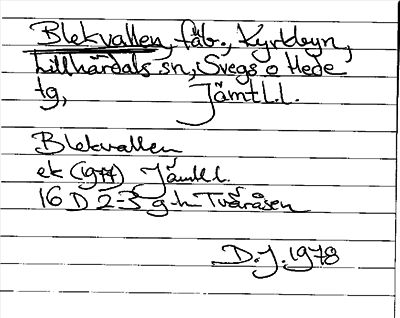 Blekvallen, fäb., Kyrkbyn,
Lillhärdals sn, Svegs o Hede
tg, Jämtl.l.
Blekvallen
ek (1977) Jämtl.l.
16 D 2-3 g-h Tvåråsen
D.J. 1978